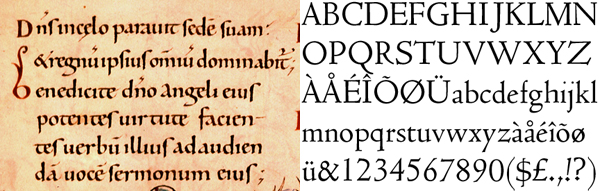 Dn̄s in celo parauit sedē suam:
& regnū ipsius om̄iū dominabit᷑;
Benedicite dn̄o angeli eius
potentes uirtute facien
tes uerbū illius ad audien
dā uocē sermonum eius ;
ABCDEFGHIJKLMN
OPQRSTUVWXYZ
ÀÅÉÎÕØÜabcdefghijkl
mnopqrstuvwxyzàåéîõø
ü&1234567890($£.,!?)